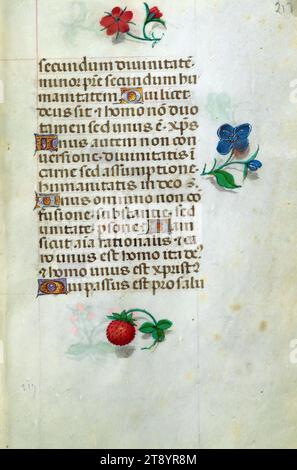 217
secundum diuinitatē.
minor pr̄e secundum hu
manitatem Qui licet
deus sit & homo non duo
tamen sed unus ē xp̄s
Unus autem non con
uersione diuinitatis ī
carnē sed assumptione
humanitatis in deo
Unus omnino non cō
fusione substantie sed
unitate ꝑsone Nam
sicut aīa rationalis & ca
ro unus est homo ita deꝰ
& homo unus est xp̄istꝰ
Qui passus est pro salu
217
alamy - 2T8YR8M